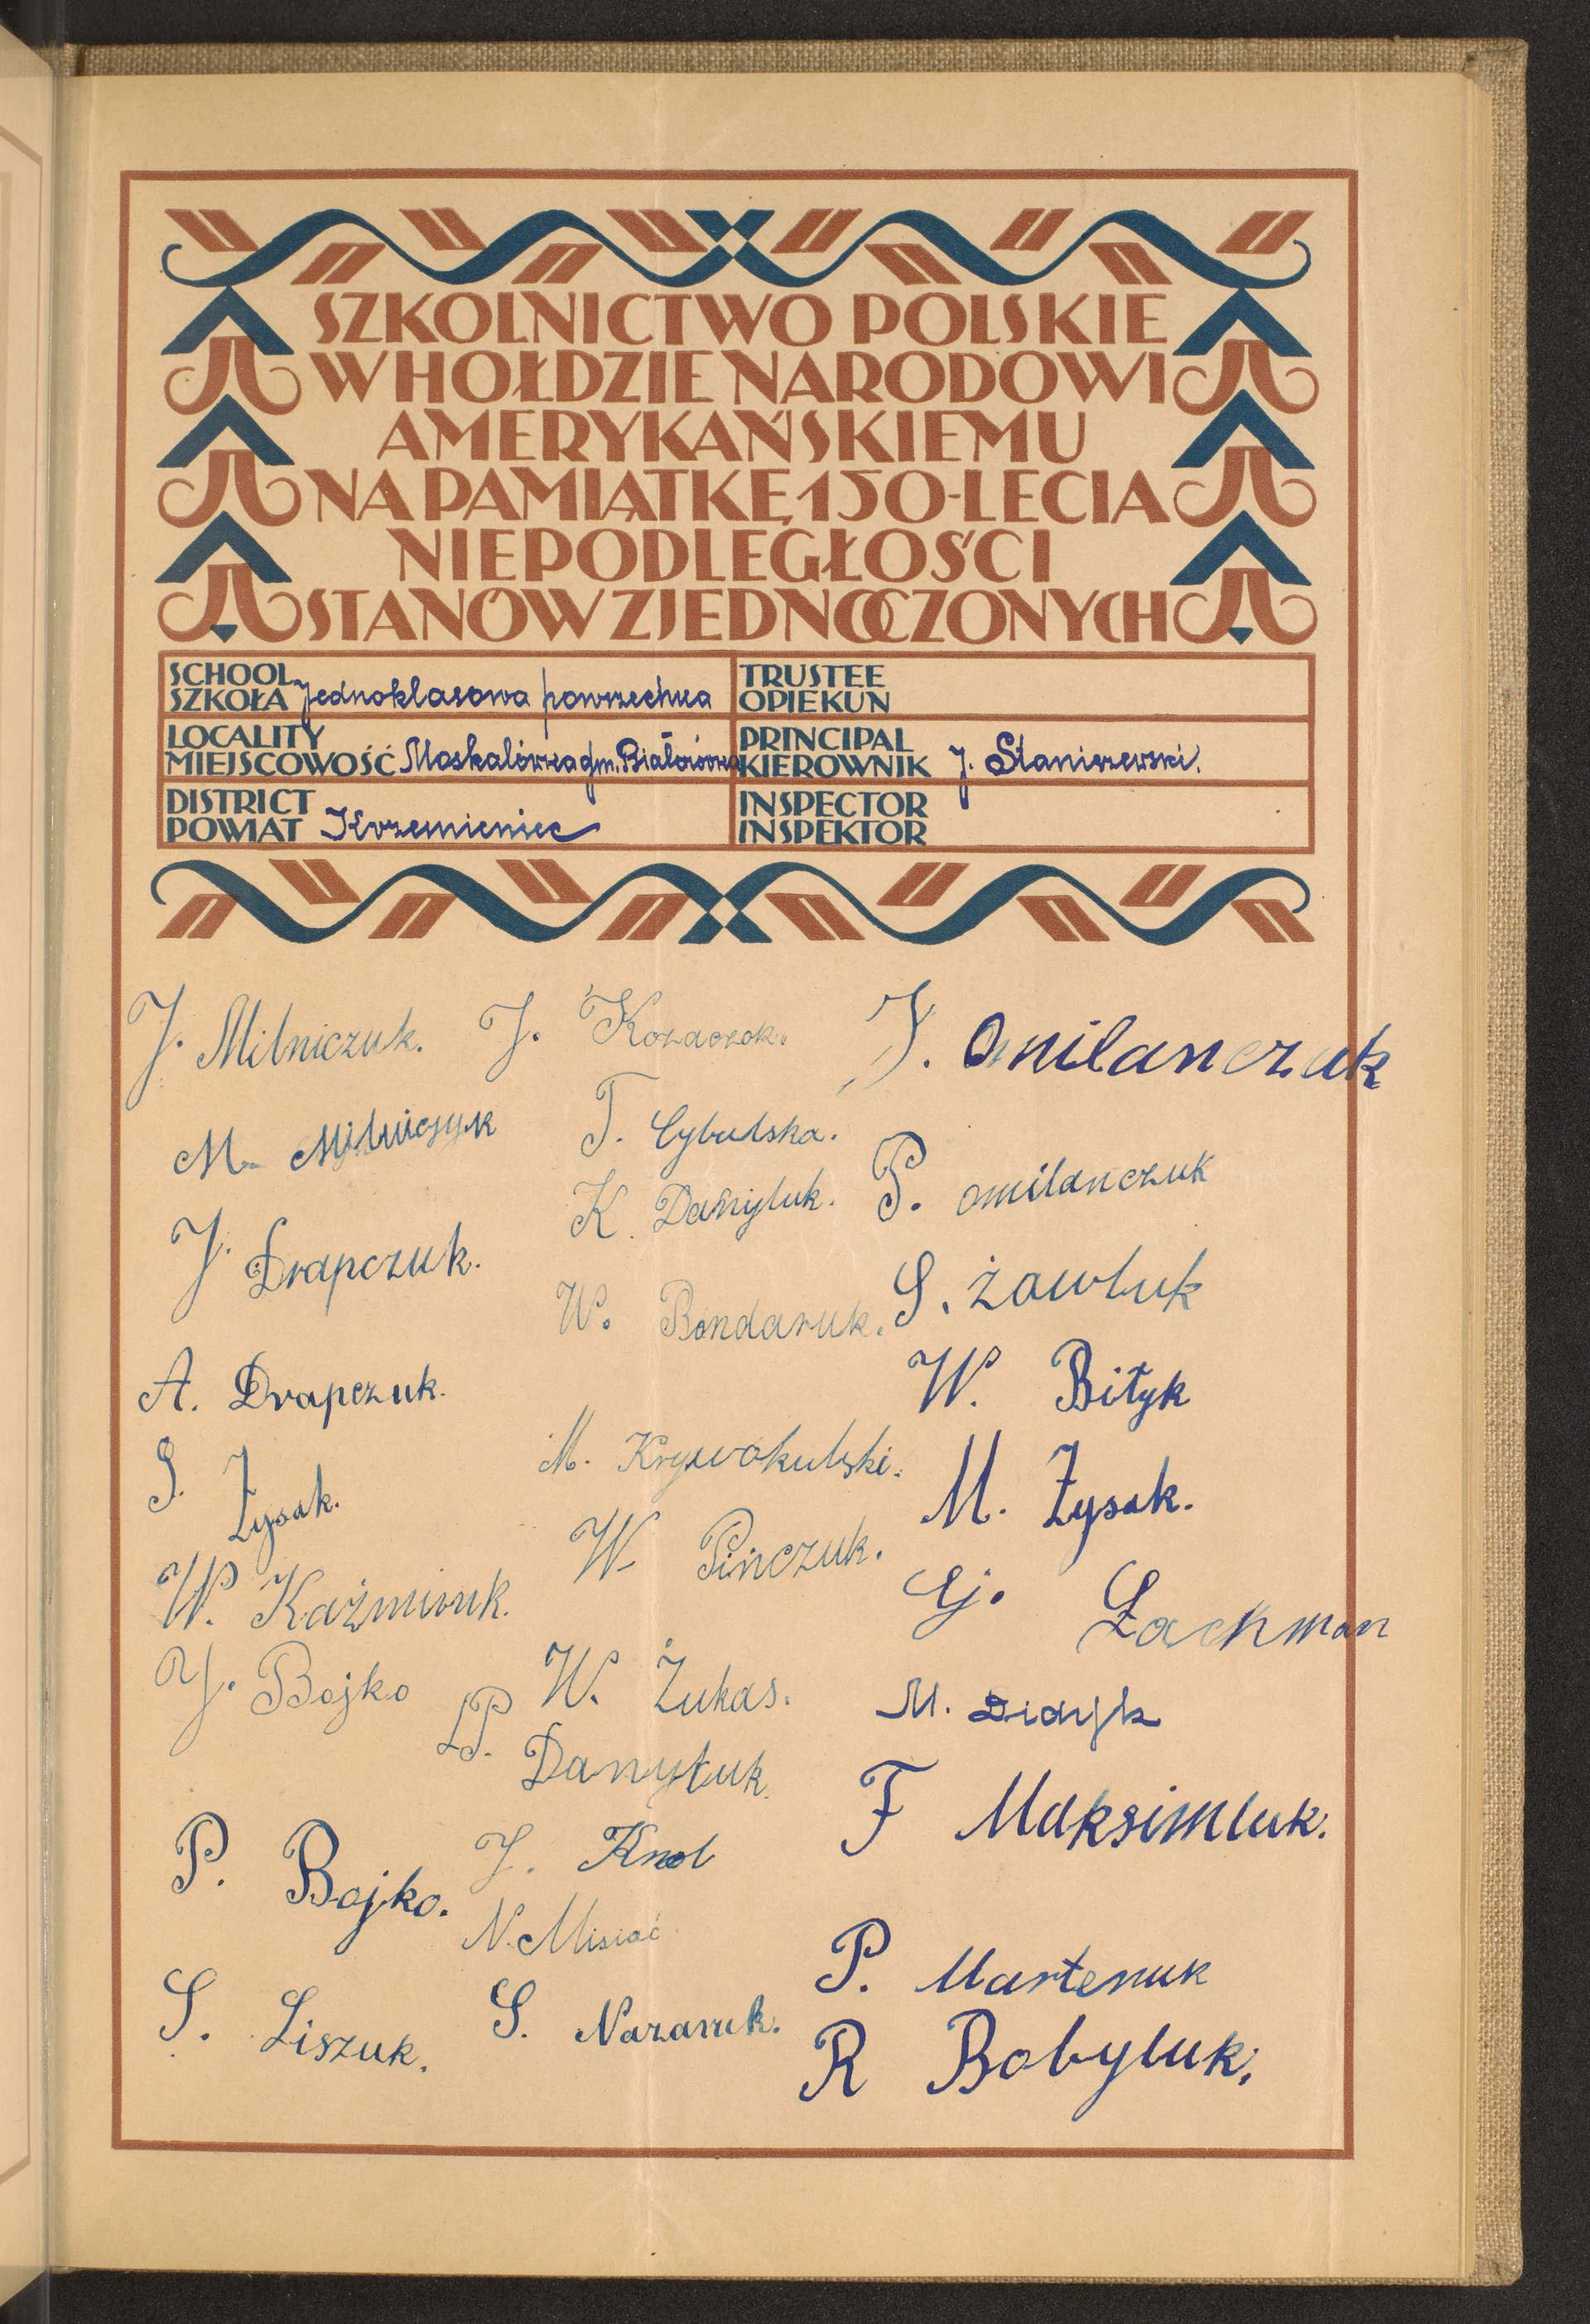 SZKOLNICTWO POLSKIE
W HOŁDZIE NARODOWI
AMERYKAŃSKIEMU
NA PAMIĄTKĘ 150-LECIA
NIEPODLEGŁOŚCI
STANÓW ZJEDNOCZONYCH
SCHOOL
SZKOŁA Jednoklasowa powszechna
LOCALITY
MIEJSCOWOŚĆ Moskalówka gm. Białozórka
DISTRICT
POWIAT Krzemieniec
TRUSTEE
OPIEKUN
PRINCIPAL
KIEROWNIK J. Staniszewski.
INSPECTOR
INSPEKTOR
J. Milniczuk.
M. Milniczuk
J. Drapczuk.
A. Drapczuk.
S. Zysak.
W. Kaźmiruk.
J. Bojko
P. Bojko.
S. Liszuk.
J. Kozaczok.
T. Cybulska.
K. Danyluk.
W. Bondaruk.
M. Krywokulski.
W. Pinczuk.
W. Żukas.
P. Danyłuk.
J. Knol
N. Misiać
S. Nazaruk.
J. Omilanczuk
P. omilanczuk
S. żawluk
W. Bityk
M. Zysak.
G. Lachman
M. Didyk
F Maksimluk.
P. Martenuk
R Bobyluk.